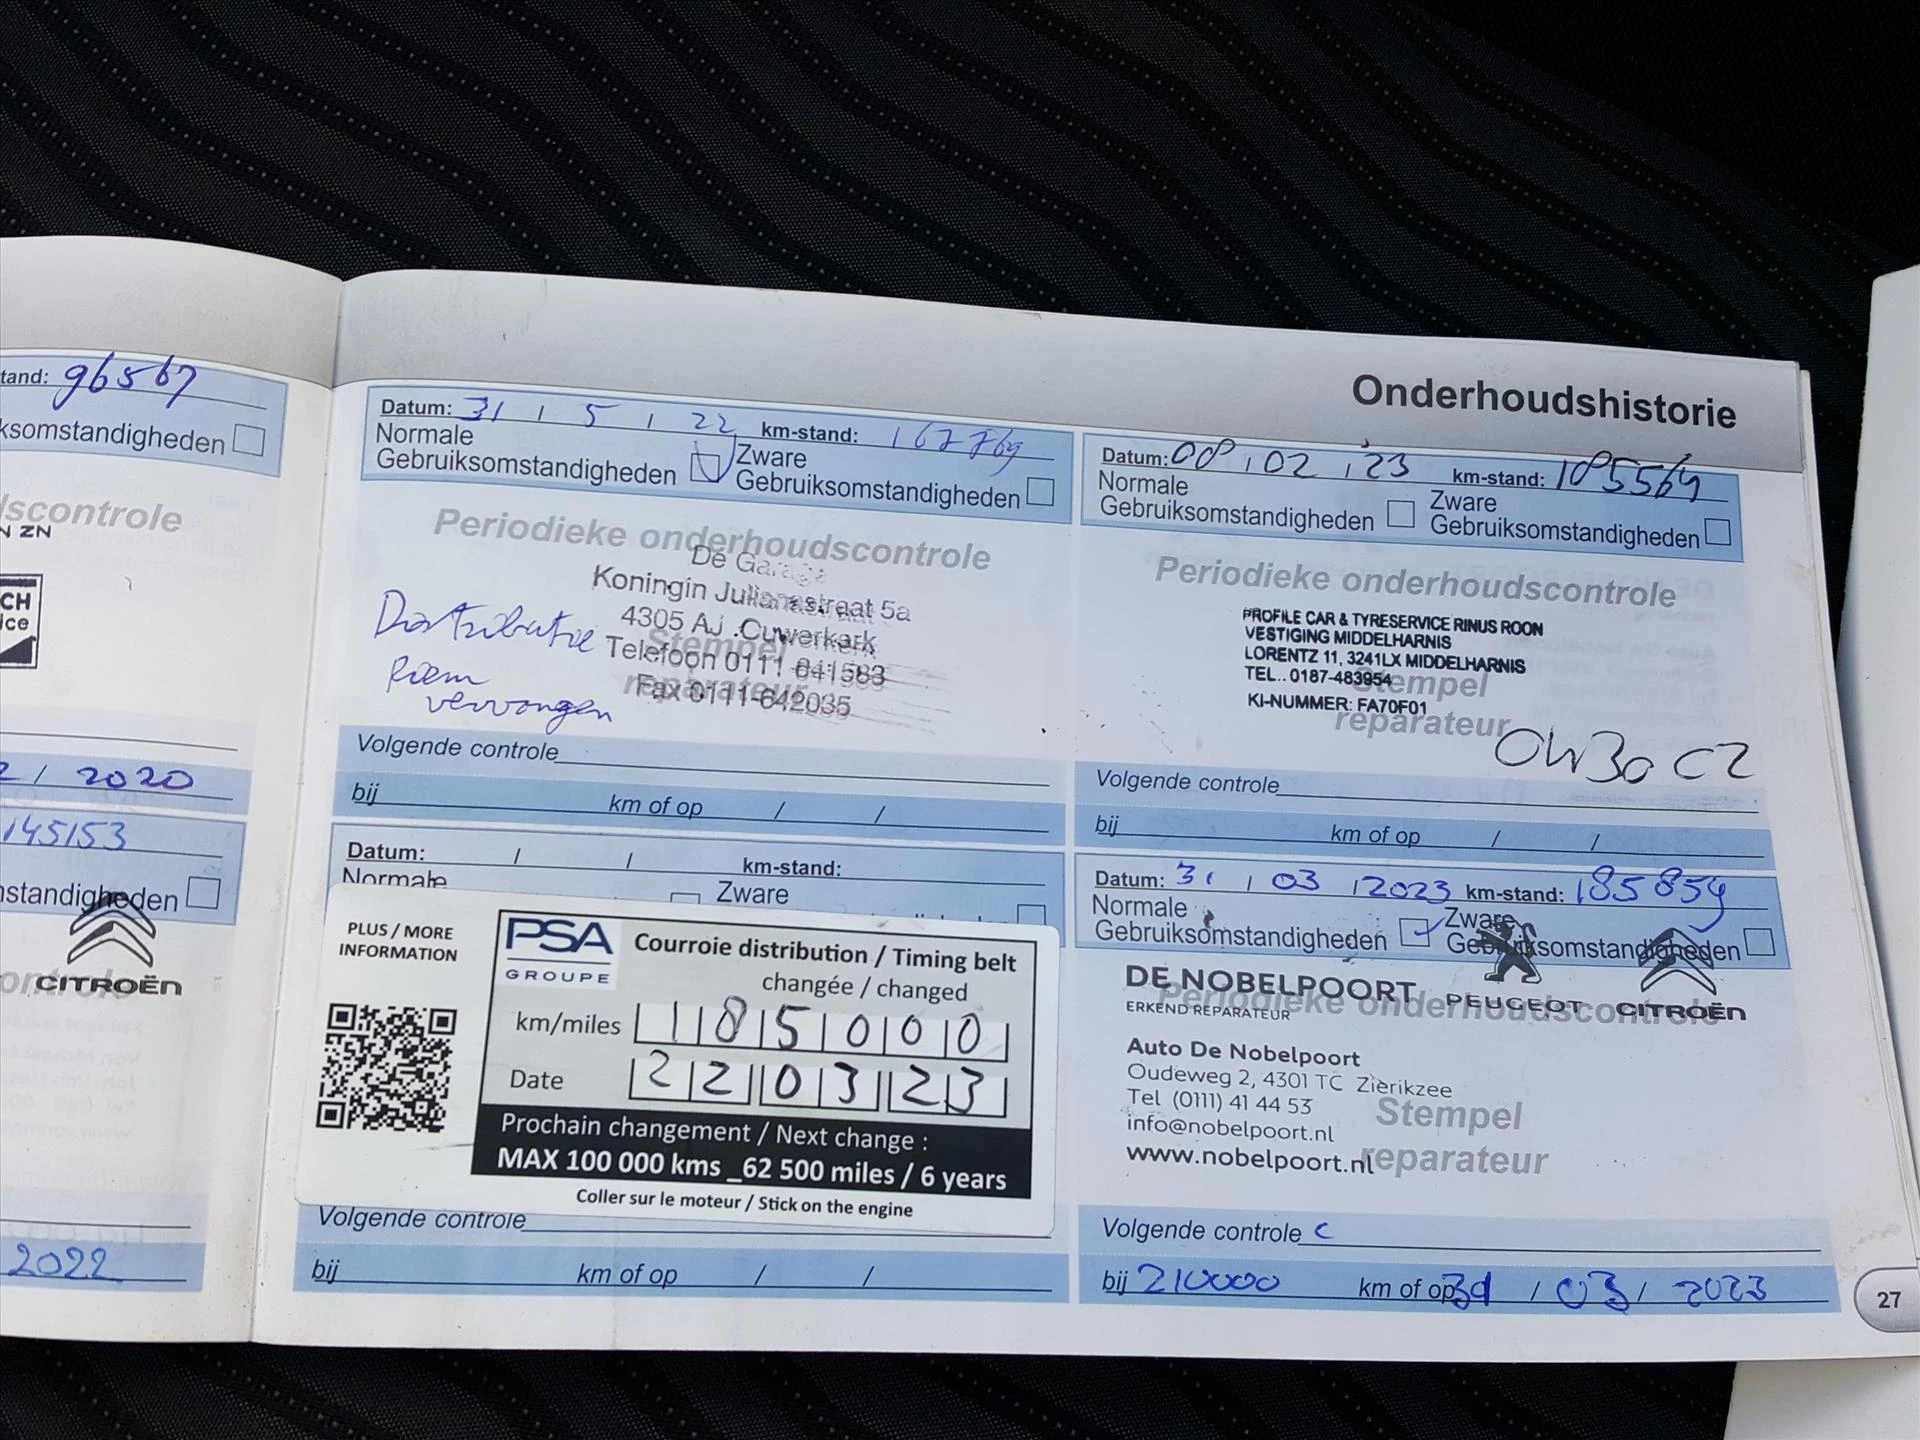 Onderhoudshistorie
tand: 96567
ksomstandigheden
scontrole
N ZN
CH
ice
/ 2020
145153
nstandigheden
CITROËN
2022
Datum: 31 / 5 / 22 km-stand: 167769
Normale
Gebruiksomstandigheden
Zware
Gebruiksomstandigheden
Periodieke onderhoudscontrole
De Garage
Koningin Julianastraat 5a
4305 AJ Ouwerkerk
Telefoon 0111-641583
Fax 0111-642035
Stempel
reparateur
Distributie
Riem
vervangen
Volgende controle
bij km of op / /
Datum: / / km-stand:
Normale
Zware
PLUS / MORE
INFORMATION
PSA
GROUPE
Courroie distribution / Timing belt
changée / changed
km/miles 185000
Date 220323
Prochain changement / Next change :
MAX 100 000 kms _62 500 miles / 6 years
Coller sur le moteur / Stick on the engine
Volgende controle
bij km of op / /
Datum: 08 / 02 / '23 km-stand: 185569
Normale
Gebruiksomstandigheden
Zware
Gebruiksomstandigheden
Periodieke onderhoudscontrole
PROFILE CAR & TYRESERVICE RINUS ROON
VESTIGING MIDDELHARNIS
LORENTZ 11, 3241LX MIDDELHARNIS
TEL.. 0187-483954
KI-NUMMER: FA70F01
Stempel
reparateur
0W30 C2
Volgende controle
bij km of op / /
Datum: 31 / 03 / 2023 km-stand: 185859
Normale
Gebruiksomstandigheden
Zware
Gebruiksomstandigheden
DE NOBELPOORT
ERKEND REPARATEUR
PEUGEOT
CITROËN
Periodieke onderhoudscontrole
Auto De Nobelpoort
Oudeweg 2, 4301 TC Zierikzee
Tel (0111) 41 44 53
info@nobelpoort.nl
www.nobelpoort.nl
Stempel
reparateur
Volgende controle C
bij 210000 km of op 31 / 03 / 2023
27